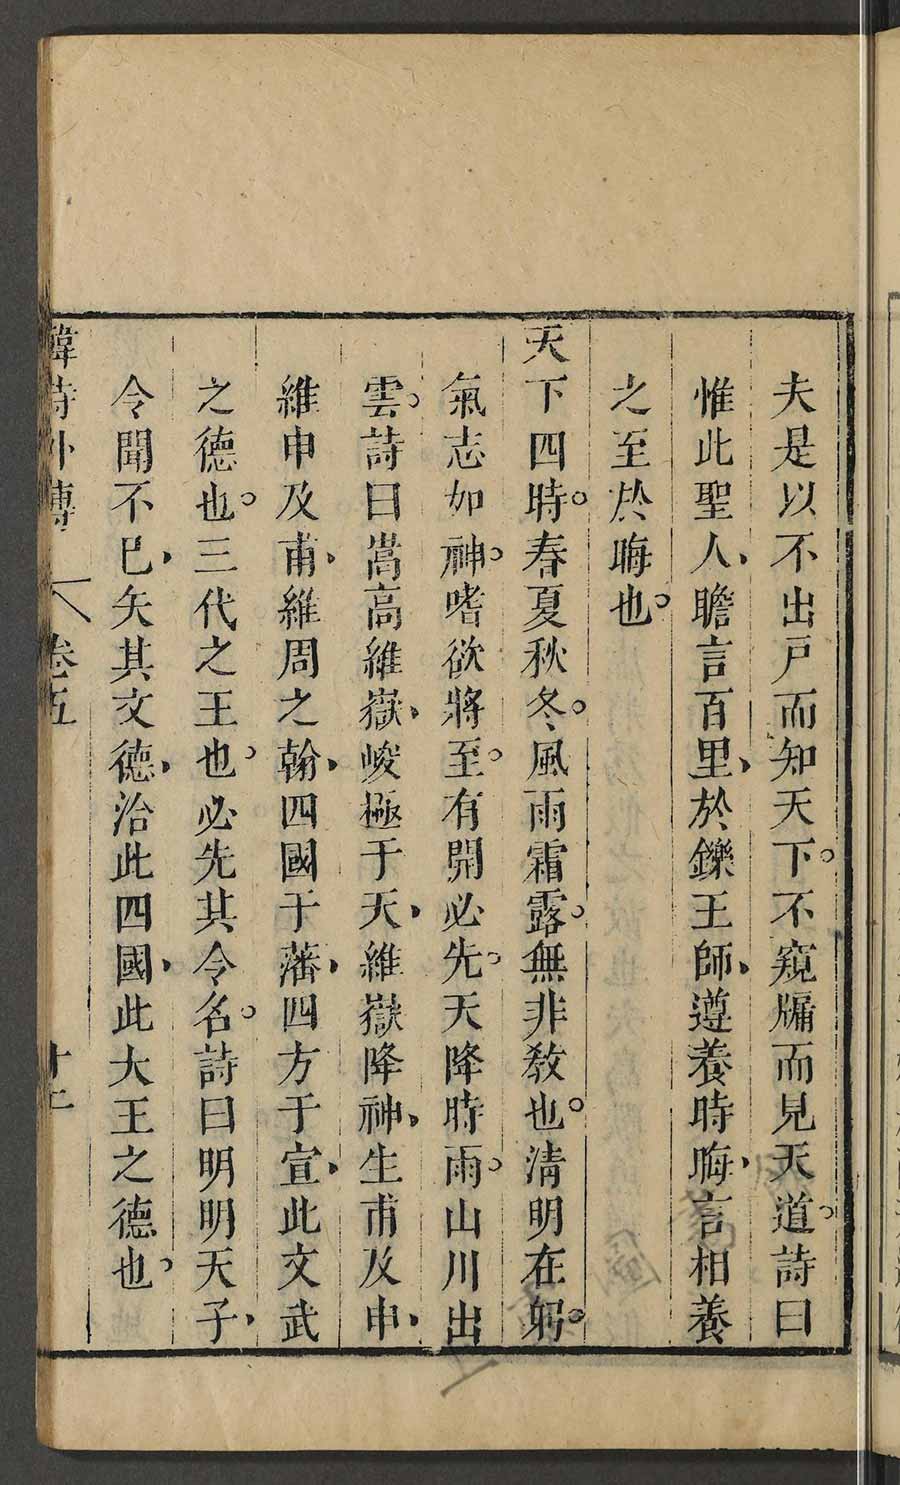 夫是以不出戸而知天下。不窺牖而見天道。詩曰
惟此聖人、瞻言百里、於鑠王師、遵養時晦、言相養
之至於晦也。
天下四時。春夏秋冬。風雨霜露。無非教也。清明在躬。
氣志如神。嗜欲將至。有開必先。天降時雨。山川出
雲。詩曰嵩高維嶽、峻極于天、維嶽降神、生甫及申、
維申及甫、維周之翰、四國于藩、四方于宣、此文武
之德也。三代之王也。必先其令名。詩曰明明天子、
令聞不已、矢其文德、洽此四國、此大王之德也。
韓詩外傳 卷五 十二